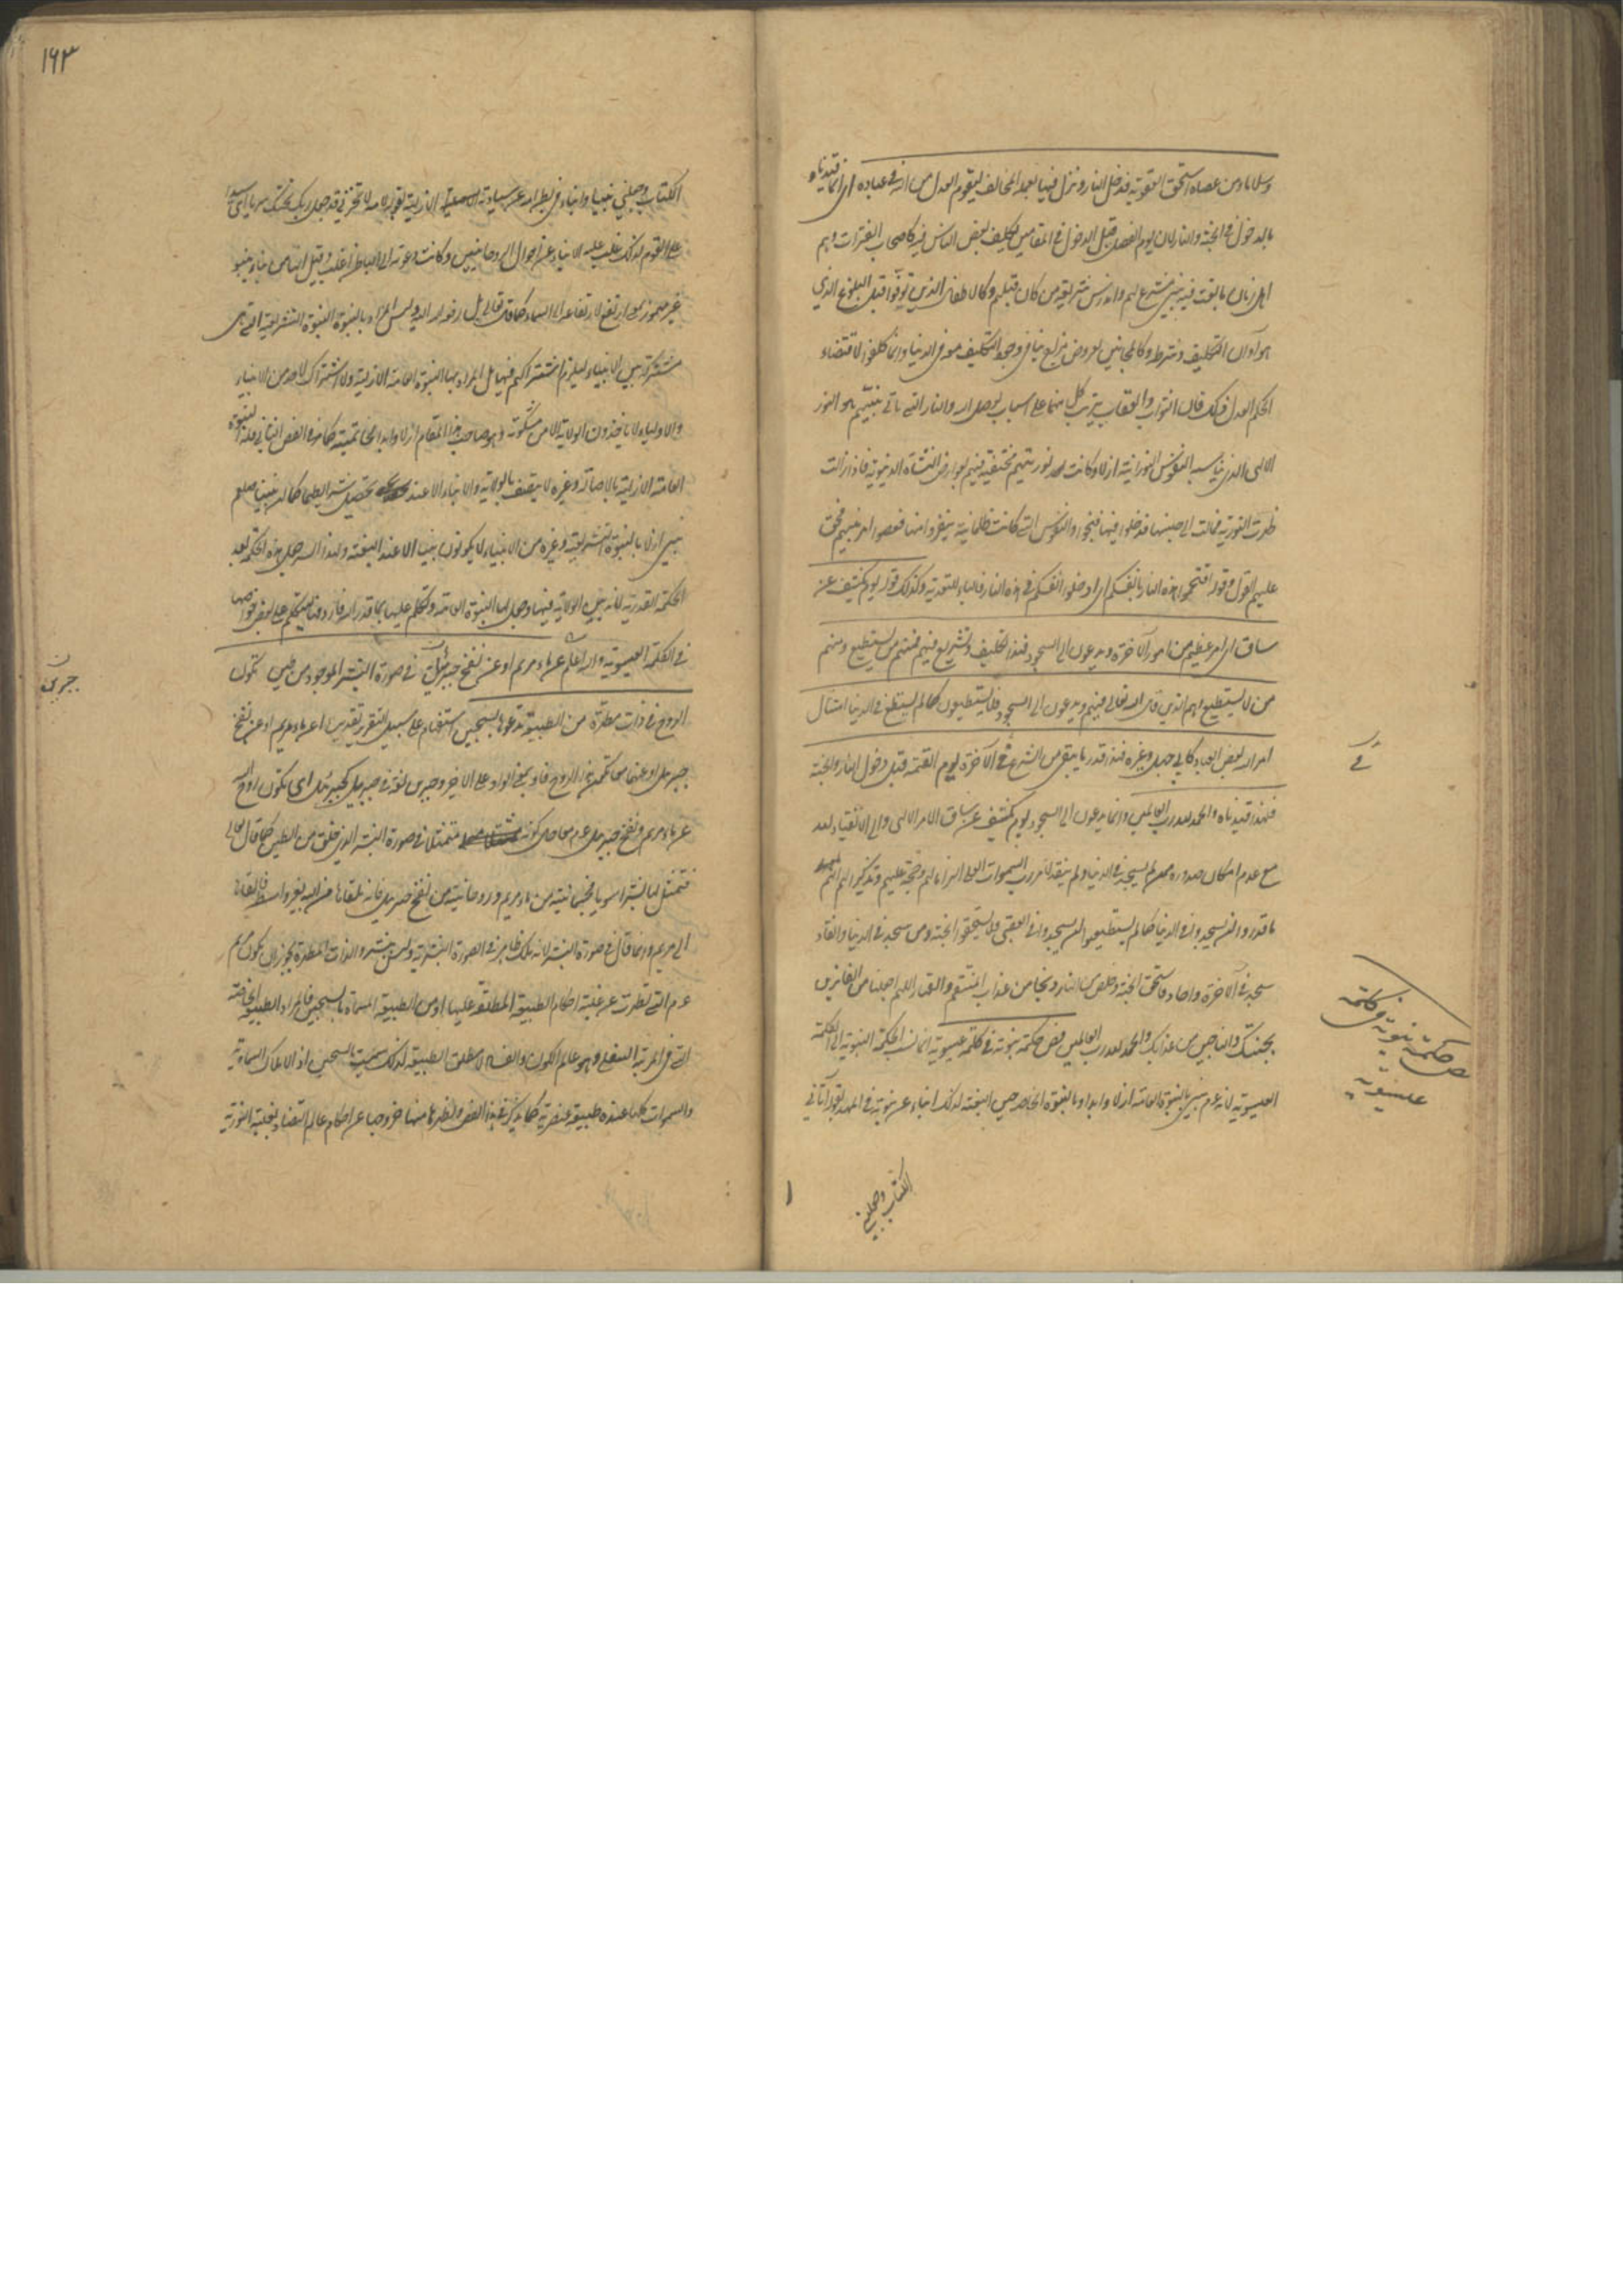 وسلاما ومن عصاه استحق العقوبة فدخل النار ونزل فيها بعمله المخالف ليقوم العدل من الله في عباده اي انما قيدناه
بالدخول في الجنة والنار لان يوم الفصل قبل الدخول في المقامين تكليف بعض الناس فيه كاصحاب الفترات وهم
اهل زمان ما بعث فيه نبي مشرع لهم واندرس شريعة من كان قبلهم وكالاطفال الذين توفوا قبل البلوغ الذي
هو اوان التكليف وشرطه وكالمجانين لعروض مزاج ينافي وجه التكليف هو في الدنيا وانما كلفوا لاقتضاء
الحكم العدل ذلك فان الثواب والعقاب يترتب كل منهما على اسباب يوصل اليه والنار التي ياتي نبيهم هو النور
الالهي الذي يناسبه النفوس النورانية ازلا وكانت نوريتهم مختفية فيهم لعوارض النشأة الدنيوية فاذا زالت
ظهرت النورية فمالت الى جنسها فدخلوا فيها فنجوا والنفوس التي كانت ظلمانية ينفروا منها فعصوا امر نبيهم فحق
عليهم القول وقوله اقتحموا هذه النار بانفسكم اي ادخلوا انفسكم في هذه النار فالباء للتعدية وكذلك قوله يوم يكشف عن
ساق اي امر عظيم من امور الآخرة ويدعون الى السجود فهذا تكليف وتشريع فيهم فمنهم من يستطيع ومنهم
من لا يستطيع وهم الذين قال الله تعالى فيهم ويدعون الى السجود فلا يستطيعون كما لم يستطع في الدنيا امتثال
امر الله بعض العباد كابي جهل وغيره فهذا قدر ما يبقى من الشرع في الآخرة يوم القيمة قبل دخول النار والجنة
فلهذا قيدناه والحمد لله رب العالمين وانما يدعون الى السجود يوم يكشف عن ساق الامر الالهي والى الانقياد لله
مع عدم امكان صدوره ممن لم يسجد في الدنيا ولم ينقد لامر رب السموات العلى الزاما لهم وحجة عليهم وتذكيرا لهم انهم
ما قدروا ان يسجدوا في الدنيا كما لم يستطيعوا ان يسجدوا في العقبى فلا يستحقوا الجنة ومن سجد في الدنيا وانقاد
سجد في الآخرة وانقاد فاستحق الجنة وخلص من النار ونجا من عذاب المنتقم والقهار اللهم اجعلنا من الفائزين
بجنتك والناجين من عذابك والحمد لله رب العالمين فص حكمة نبوية في كلمة عيسوية انما نسب الحكمة النبوية الى الكلمة
العيسوية لانه عم نبي بالنبوة العامة ازلا وابدا وبالنبوة الخاصة حين البعثة لذلك انباء عن نبوته في المهد بقوله آتاني
في
فص حكمة نبوية في كلمة
عيسوية
الكتاب وجعلني
١٦٣
الكتاب وجعلني نبيا وانباء في بطن امه عن سيادته الازلية بقوله لامه لا تحزني قد جعل ربك تحتك سريا اي سيدا
على القوم لذلك غلب عليه الانباء عن احوال الروحانيين وكانت دعوته الى الباطن اغلب وقيل انها من نبا ينبو
غير مهموز بمعنى ارتفع لارتفاعه الى السماء كما قال تعالى بل رفعه الله اليه وليس المراد بالنبوة النبوة التشريعية التي هي
مشتركة بين الانبياء ليلزم اشتراكهم فيها بل المراد بها النبوة العامة الازلية ولا اشتراك لاحد من الانبياء
والاولياء لا ياخذون الولاية الا من مشكوته وهو صاحب هذا المقام ازلا وابدا كخاتميته كما مر في الفص الثاني فله النبوة
العامة الازلية بالاصالة وغيره لا يتصف بالولاية والانباء الا عند تحصيل شرائطها كما ان نبينا صلعم
نبي ازلا بالنبوة التشريعية وغيره من الانبياء لا يكونون نبيا الا عند البعثة ولهذا السر جعل هذه الحكمة بعد
الحكمة القدرية لانه بين الولاية فيها وجعل لها النبوة العامة وتكلم عليها بما قدر الله فاراد هنا ليتكلم على بعض خواصها
في الكلمة العيسوية والله اعلم عن ماء مريم او عن نفخ جبرئيل في صورة البشر الموجود من طين تكون
الروح في ذات مطهرة من الطبيعة تدعوها بسجين استفهام على سبيل التقرير تقديره اعن ماء مريم او عن نفخ
جبرئيل او عنهما معا تكون هذا الروح فاو بمعنى الواو على الاخير وجبرين لغة في جبرئيل كجبرئل اي تكون الروح
عن ماء مريم ونفخ جبرئيل عم معا حال كونه متمثلا في صورة البشر الذي خلق من الطين كما قال تعالى
فتمثل لها بشرا سويا فجثمانيته من ماء مريم وروحانيته من نفخ جبرئيل فانه تلقاها من الله بغير واسطة فالقاه
الى مريم وانما قال في صورة البشر لانه ملك ظاهر في الصورة البشرية وليس ببشر والذات المطهرة يجوز ان يكون مريم
عم التي تطهرت عن غلبة احكام الطبيعة المطلقة عليها او من الطبيعة المسماة بالسجين فالمراد الطبيعة الخاصة
التي في المرتبة السفلى وهو عالم الكون والفساد لا مطلق الطبيعة لذلك سميت بالسجين اذ الاملاك السماوية
والسموات كلها عنده طبيعية عنصرية كما يذكر في هذا الفص وتطهرها منها خروجها عن احكام عالم التضاد بغلبة النورية
جبرين